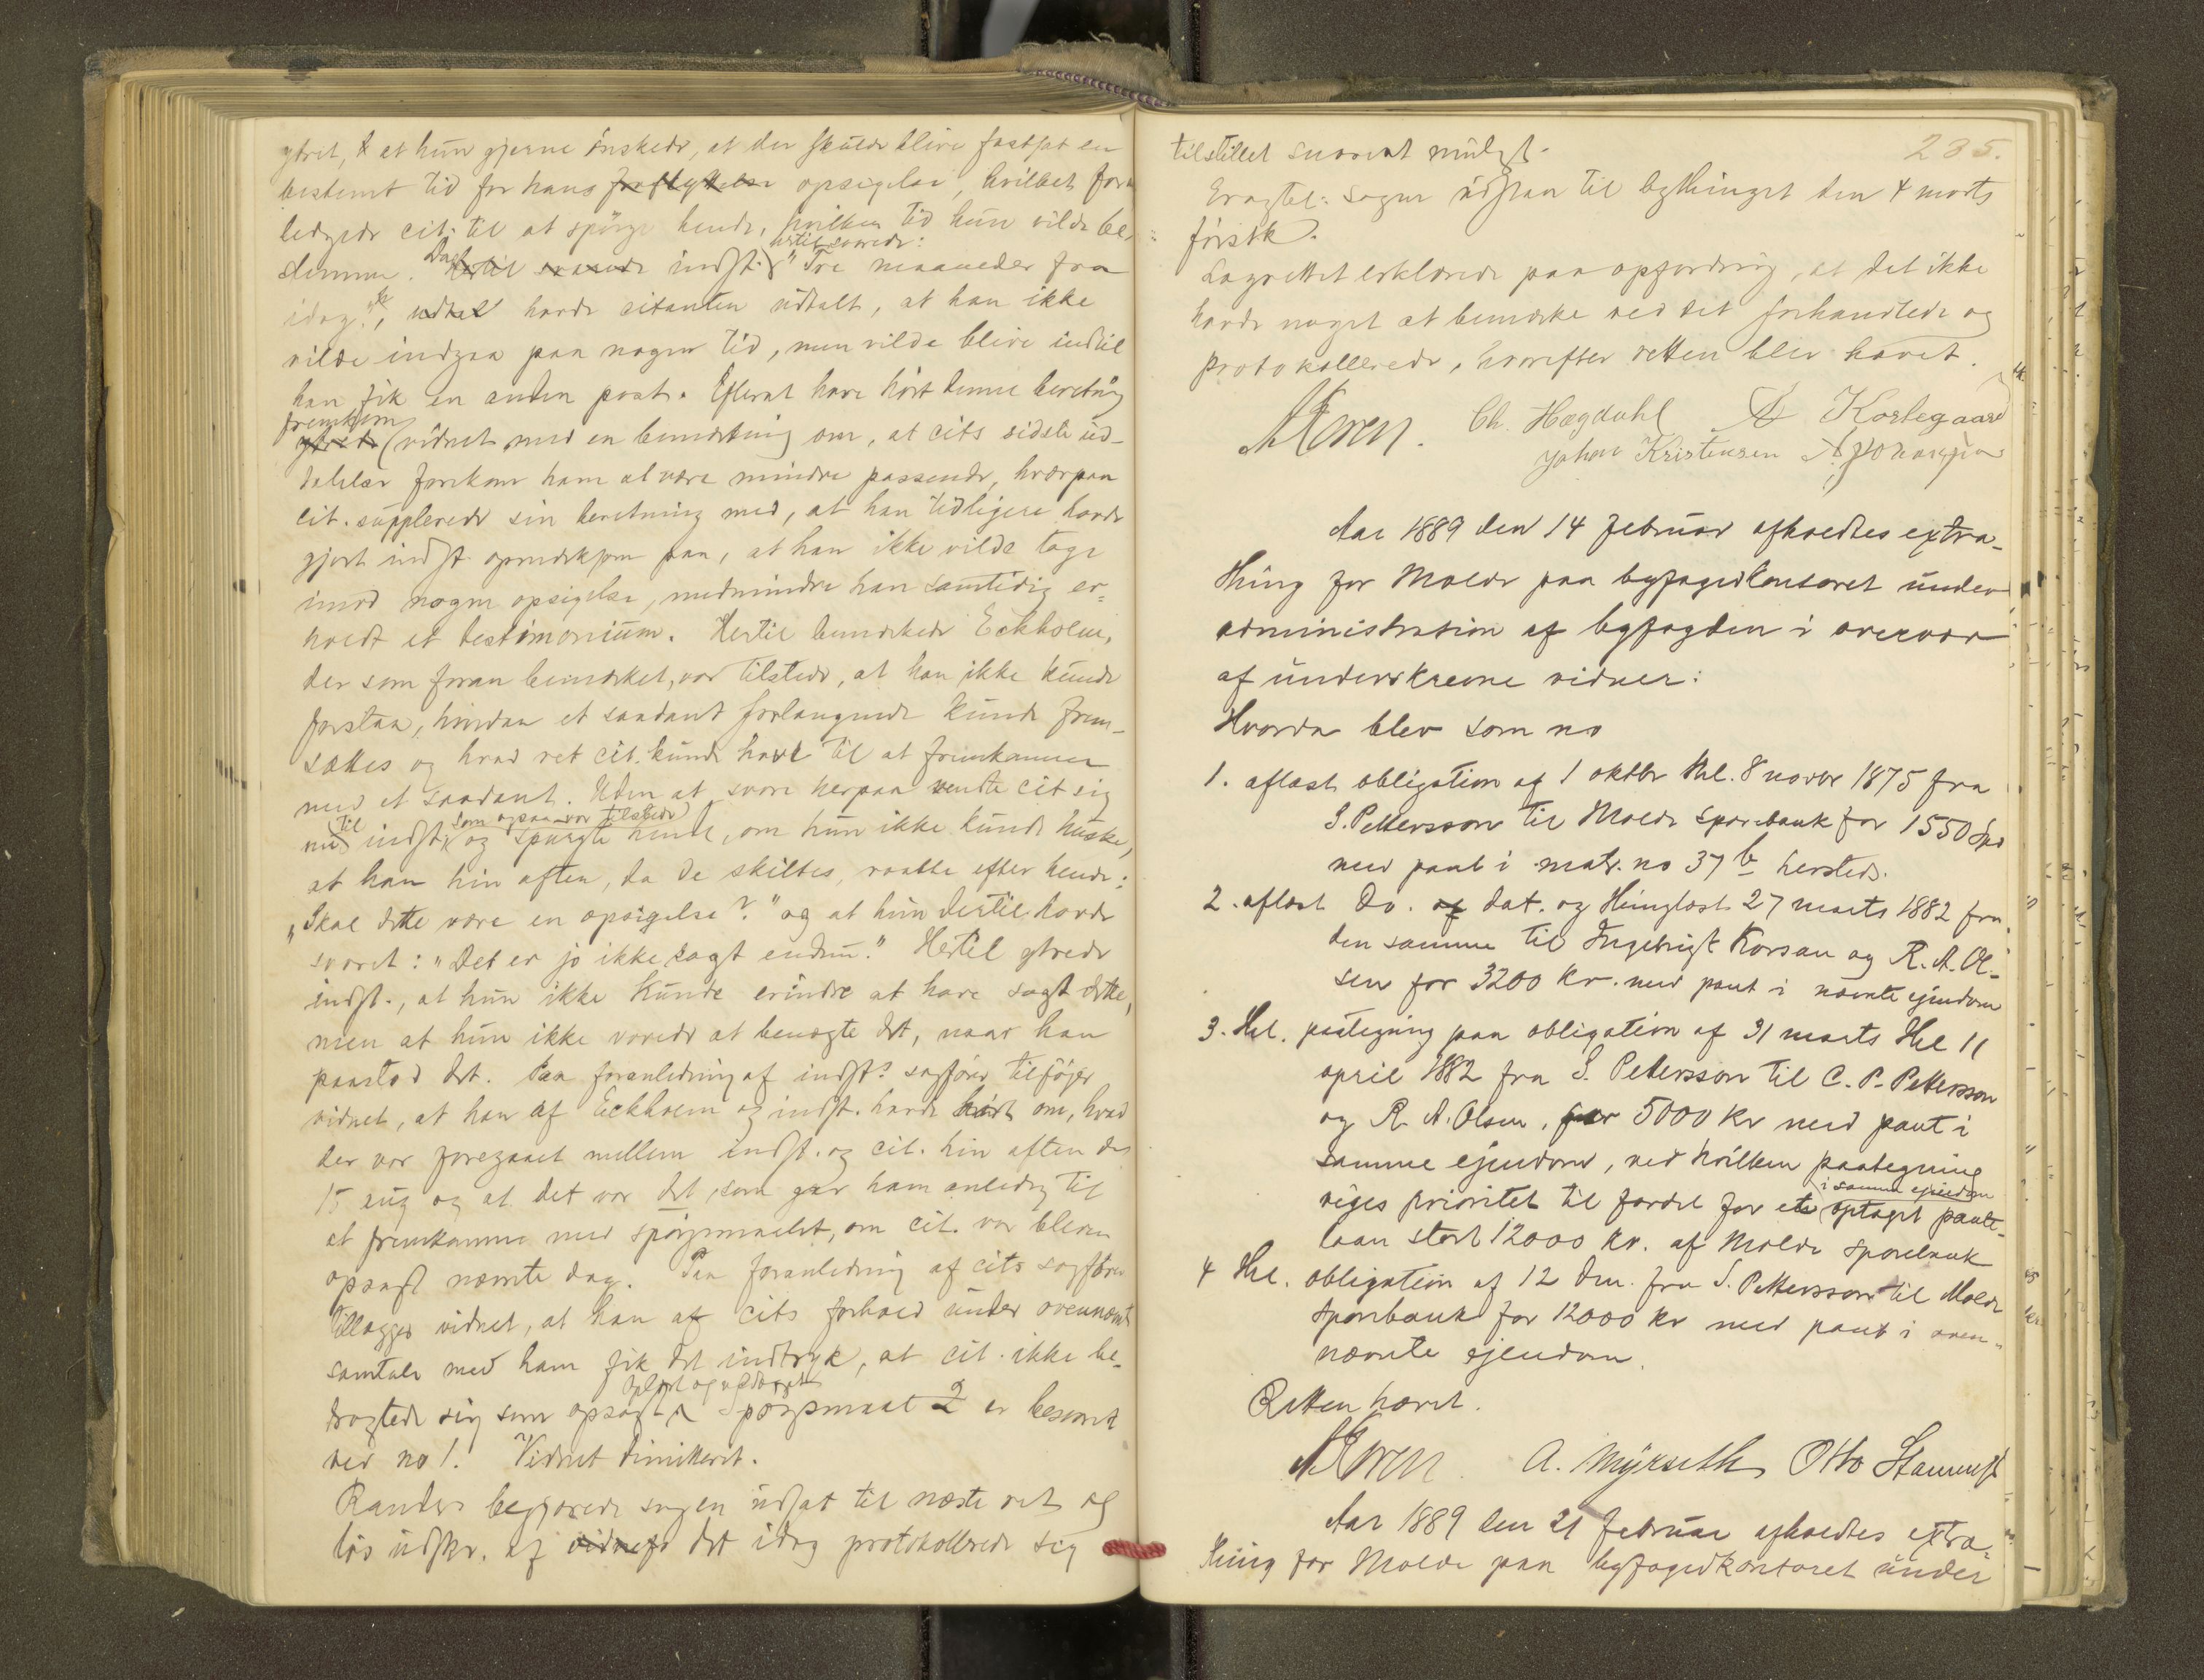 ytret, & at hun gjerne ønskede, at der skulde blive fastsat en
bestemt tid for hans opsigelse, hvilket foran
ledigede cit. til at spörge hende, hvilken tid hun vilde be-
stemme. Da hertil svarede indst. hertil svarede: "Tre maaneder fra
idag", havde citanten udtalt, at han ikke
vilde indgaa paa nogen tid, men vilde blive indtil
han fik en anden post. Efterat have hört denne beretning
fremkom vidnet med en bemærkning om, at cits sidste ud-
talelser forekom ham at være mindre passende, hvorpaa
cit. supplerede sin beretning med, at han tidligere havde
gjort indst. opmerksom paa, at han ikke vilde tage
imod nogen opsigelse, medmindre han samtidig er-
holdt et testimonium. Hertil bemerkede Eckholm,
der som foran bemærket, var tilstede, at han ikke kunde
forstaa, hvordan et saadant forlangende kunde frem-
sættes og hvad ret cit. kunde have til at fremkomme
med et saadant. Uden at svare herpaa vendte cit sig
nu til indst. som ogsaa var tilstede og spurgte hende, om hun ikke kunde huske,
at han hin aften, da de skiltes, raabte efter hende:
"Skal dette være en opsigelse?" og at hun dertil havde
svaret: "Det er jo ikke sagt endnu." Hertil ytrede
indst., at hun ikke kunde erindre at have sagt dette,
men at hun ikke vovede at benegte det, naar han
paastod det. Paa foranledning af indst.s sagförer tilföjer
vidnet, at han af Eckholm og indst. havde hört om, hvad
der var foregaaet mellem indst. og cit. hin aften den
15 aug og at det var det, som gav ham anledng til
at fremkomme med spörgsmaalet, om cit. var bleven
opsagt nævnte dag. Paa foranledning af cits sagförer
tillægger vidnet, at han af cits forhold under ovennævnte
samtale med ham fik det indtryk, at cit. ikke be-
tragtede sig som opsagt. Oplæst og vedtaget Spörgsmaal 2 er besvaret
ved no 1. Vidnet dimitteret.
Randers begjærede sagen udsat til næste ret og
lös udskr. af det idag protokollerede sig
235.
tilstillet snarest muligt.
Eragtet: sagen udstaar til bythinget den 4 marts
förstk.
Lagrettet erklærede paa opfordring, at det ikke
havde noget at bemærke ved det forhandlede og
protokollerede, hvorefter retten blev hævet.
Ch. Hægdahl Kortegaard
Johan Kristensen
Aar 1889 den 14 Februar afholdtes extra-
thing for Molde paa byfogedkontoret under
administration af byfogden i overvær
af underskrevne vidner:
Hvorda blev som no
1. aflæst obligation af 1 oktbr thl. 8 novbr 1875 fra
S. Pettersson til Molde sparebank for 1550 Spd
med pant i matr. no 37 b hersteds.
2. aflæst Do. af dat. og thinglæst 27 marts 1882 fra
den samme til Ingebrigt Korsan og R. A. Ol-
sen for 3200 kr. med pant i nævnte ejendom
3. thl. paategning paa obligation af 31 marts thl 11
april 1882 fra S. Pettersson til C. P. Pettersson
og R. A. Olsen, for 5000 kr med pant i
samme ejendom, ved hvilken paategning
viges prioritet til fordel for et i samme ejendom optaget pante-
laan stort 12000 kr. af Molde sparebank
4 thl. obligation af 12 dm. fra S. Pettersson til Molde
Sparebank for 12000 kr med pant i oven-
nævnte ejendom.
Retten hævet.
A. Myrseth Otto
Aar 1889 den 21 Februar afholdtes extra-
thing for Molde paa byfogedkontoret under